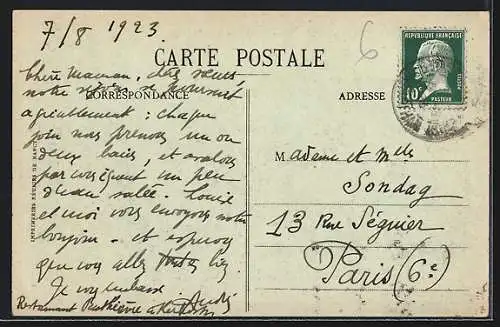 7/8 1923
6
CARTE POSTALE
RÉPUBLIQUE FRANÇAISE
10c
POSTES
PASTEUR
CORRESPONDANCE
ADRESSE
IMPRIMERIES RÉUNIES DE NANCY
Chère Maman, chez sœurs
notre séjour se poursuit
agréablement : chaque
jour nous prenons un ou
deux bains, et avalons
par conséquent un peu
d'eau salée. Louise
et moi vous envoyons notre
bonjour et
que vous allez bien.
Je vous embrasse
André
Restaurant
Madame et Mlles
Sondag
13 Rue Séguier
Paris (6e)